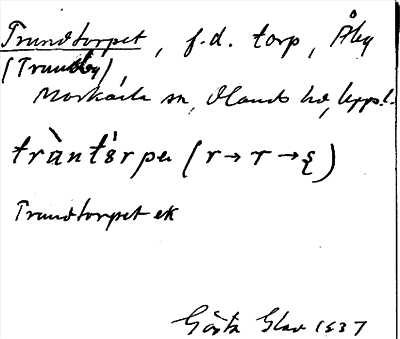 Trundtorpet, f.d. torp, Åby
(Trundby)
Morkarla sn, Olands hd, Uppl.
tràntèrpa (r→r→ξ)
Trundtorpet ek
Gösta Glav 1937